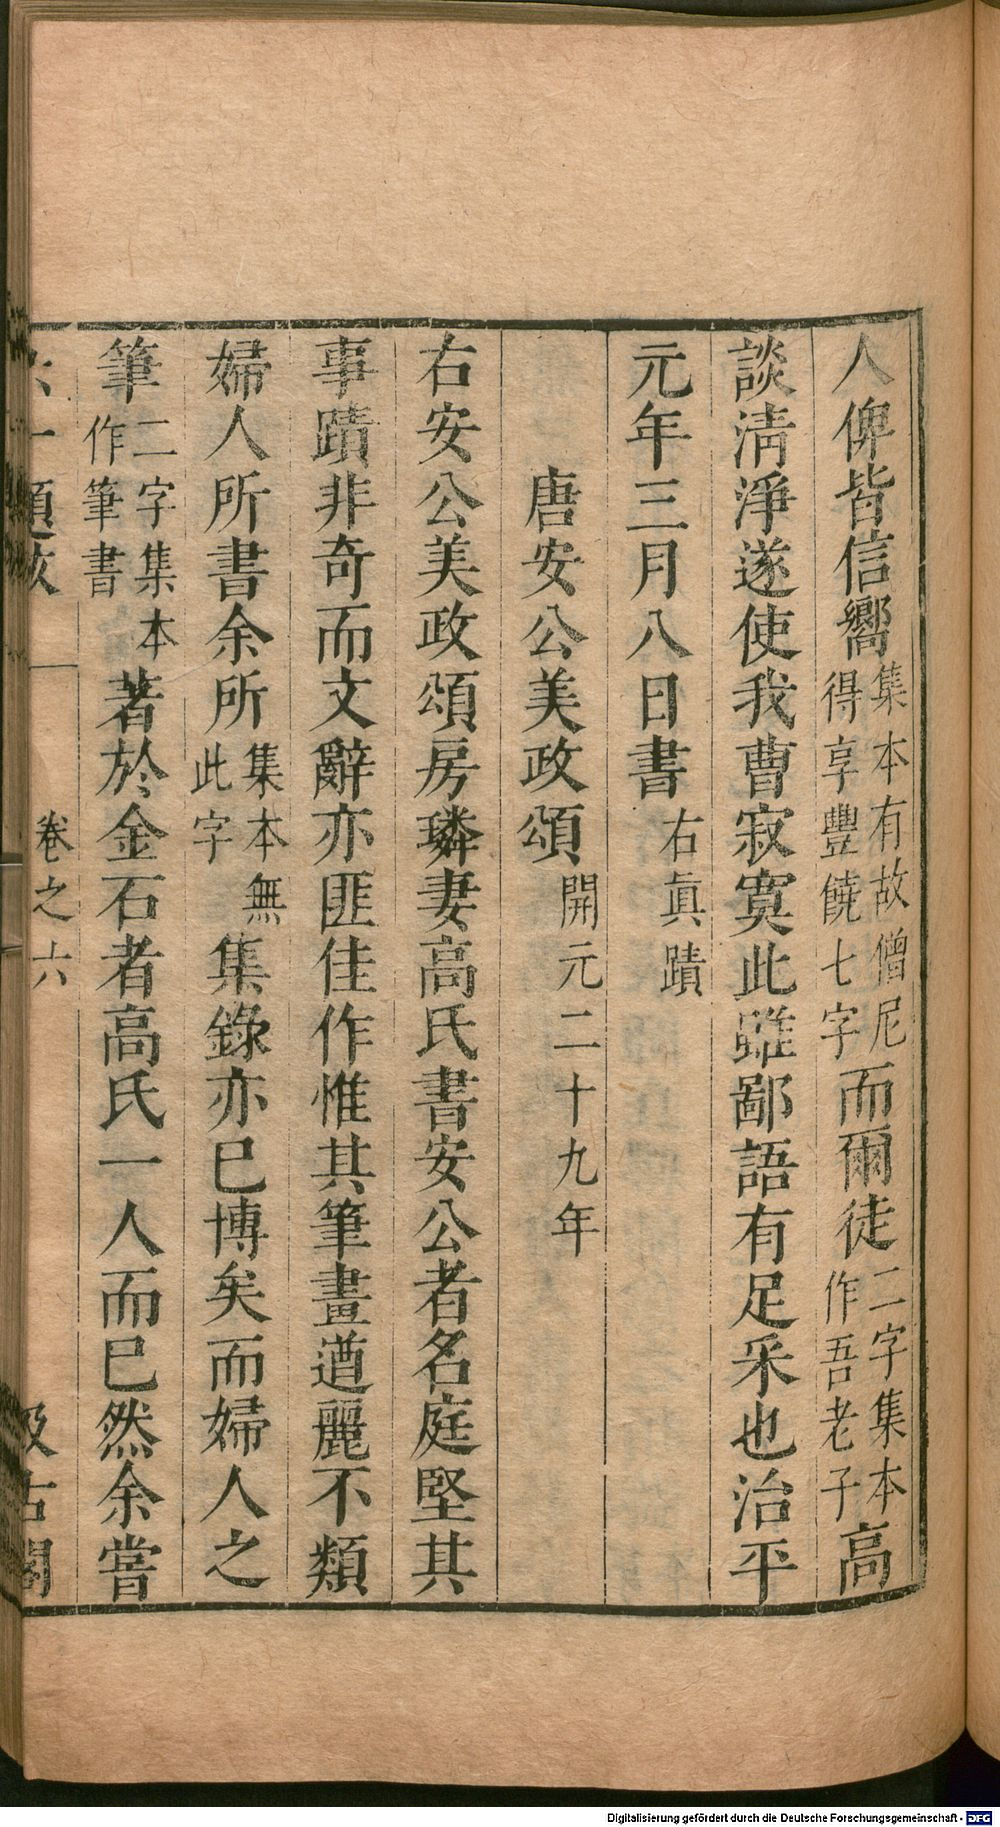 人俾皆信嚮集本有故僧尼得享豐饒七字而爾徒二字集本作吾老子高
談清淨遂使我曹寂寞此雖鄙語有足采也治平
元年三月八日書右眞蹟
唐安公美政頌開元二十九年
右安公美政頌房璘妻高氏書安公者名庭堅其
事蹟非奇而文辭亦匪佳作惟其筆畫遒麗不類
婦人所書余所集本無此字集錄亦已博矣而婦人之
筆二字集本作筆書著於金石者高氏一人而已然余嘗
六一題跋 卷之六 汲古閣
Digitalisierung gefördert durch die Deutsche Forschungsgemeinschaft - DFG